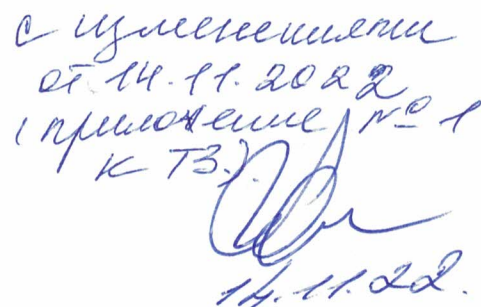 с изменениями
от 14.11.2022
(приложение № 1
к ТЗ.)
14.11.22.